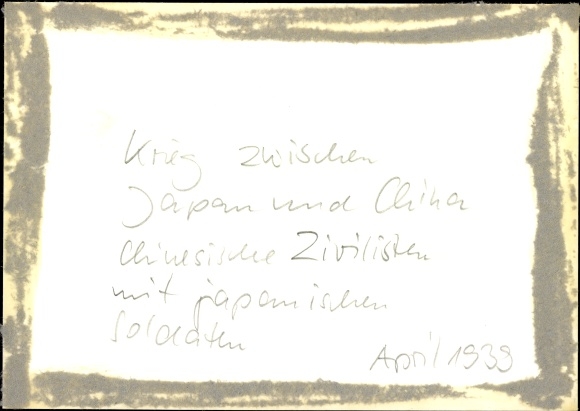 Krieg zwischen
Japan und China
chinesische Zivilisten
mit japanischen
Soldaten
April 1939